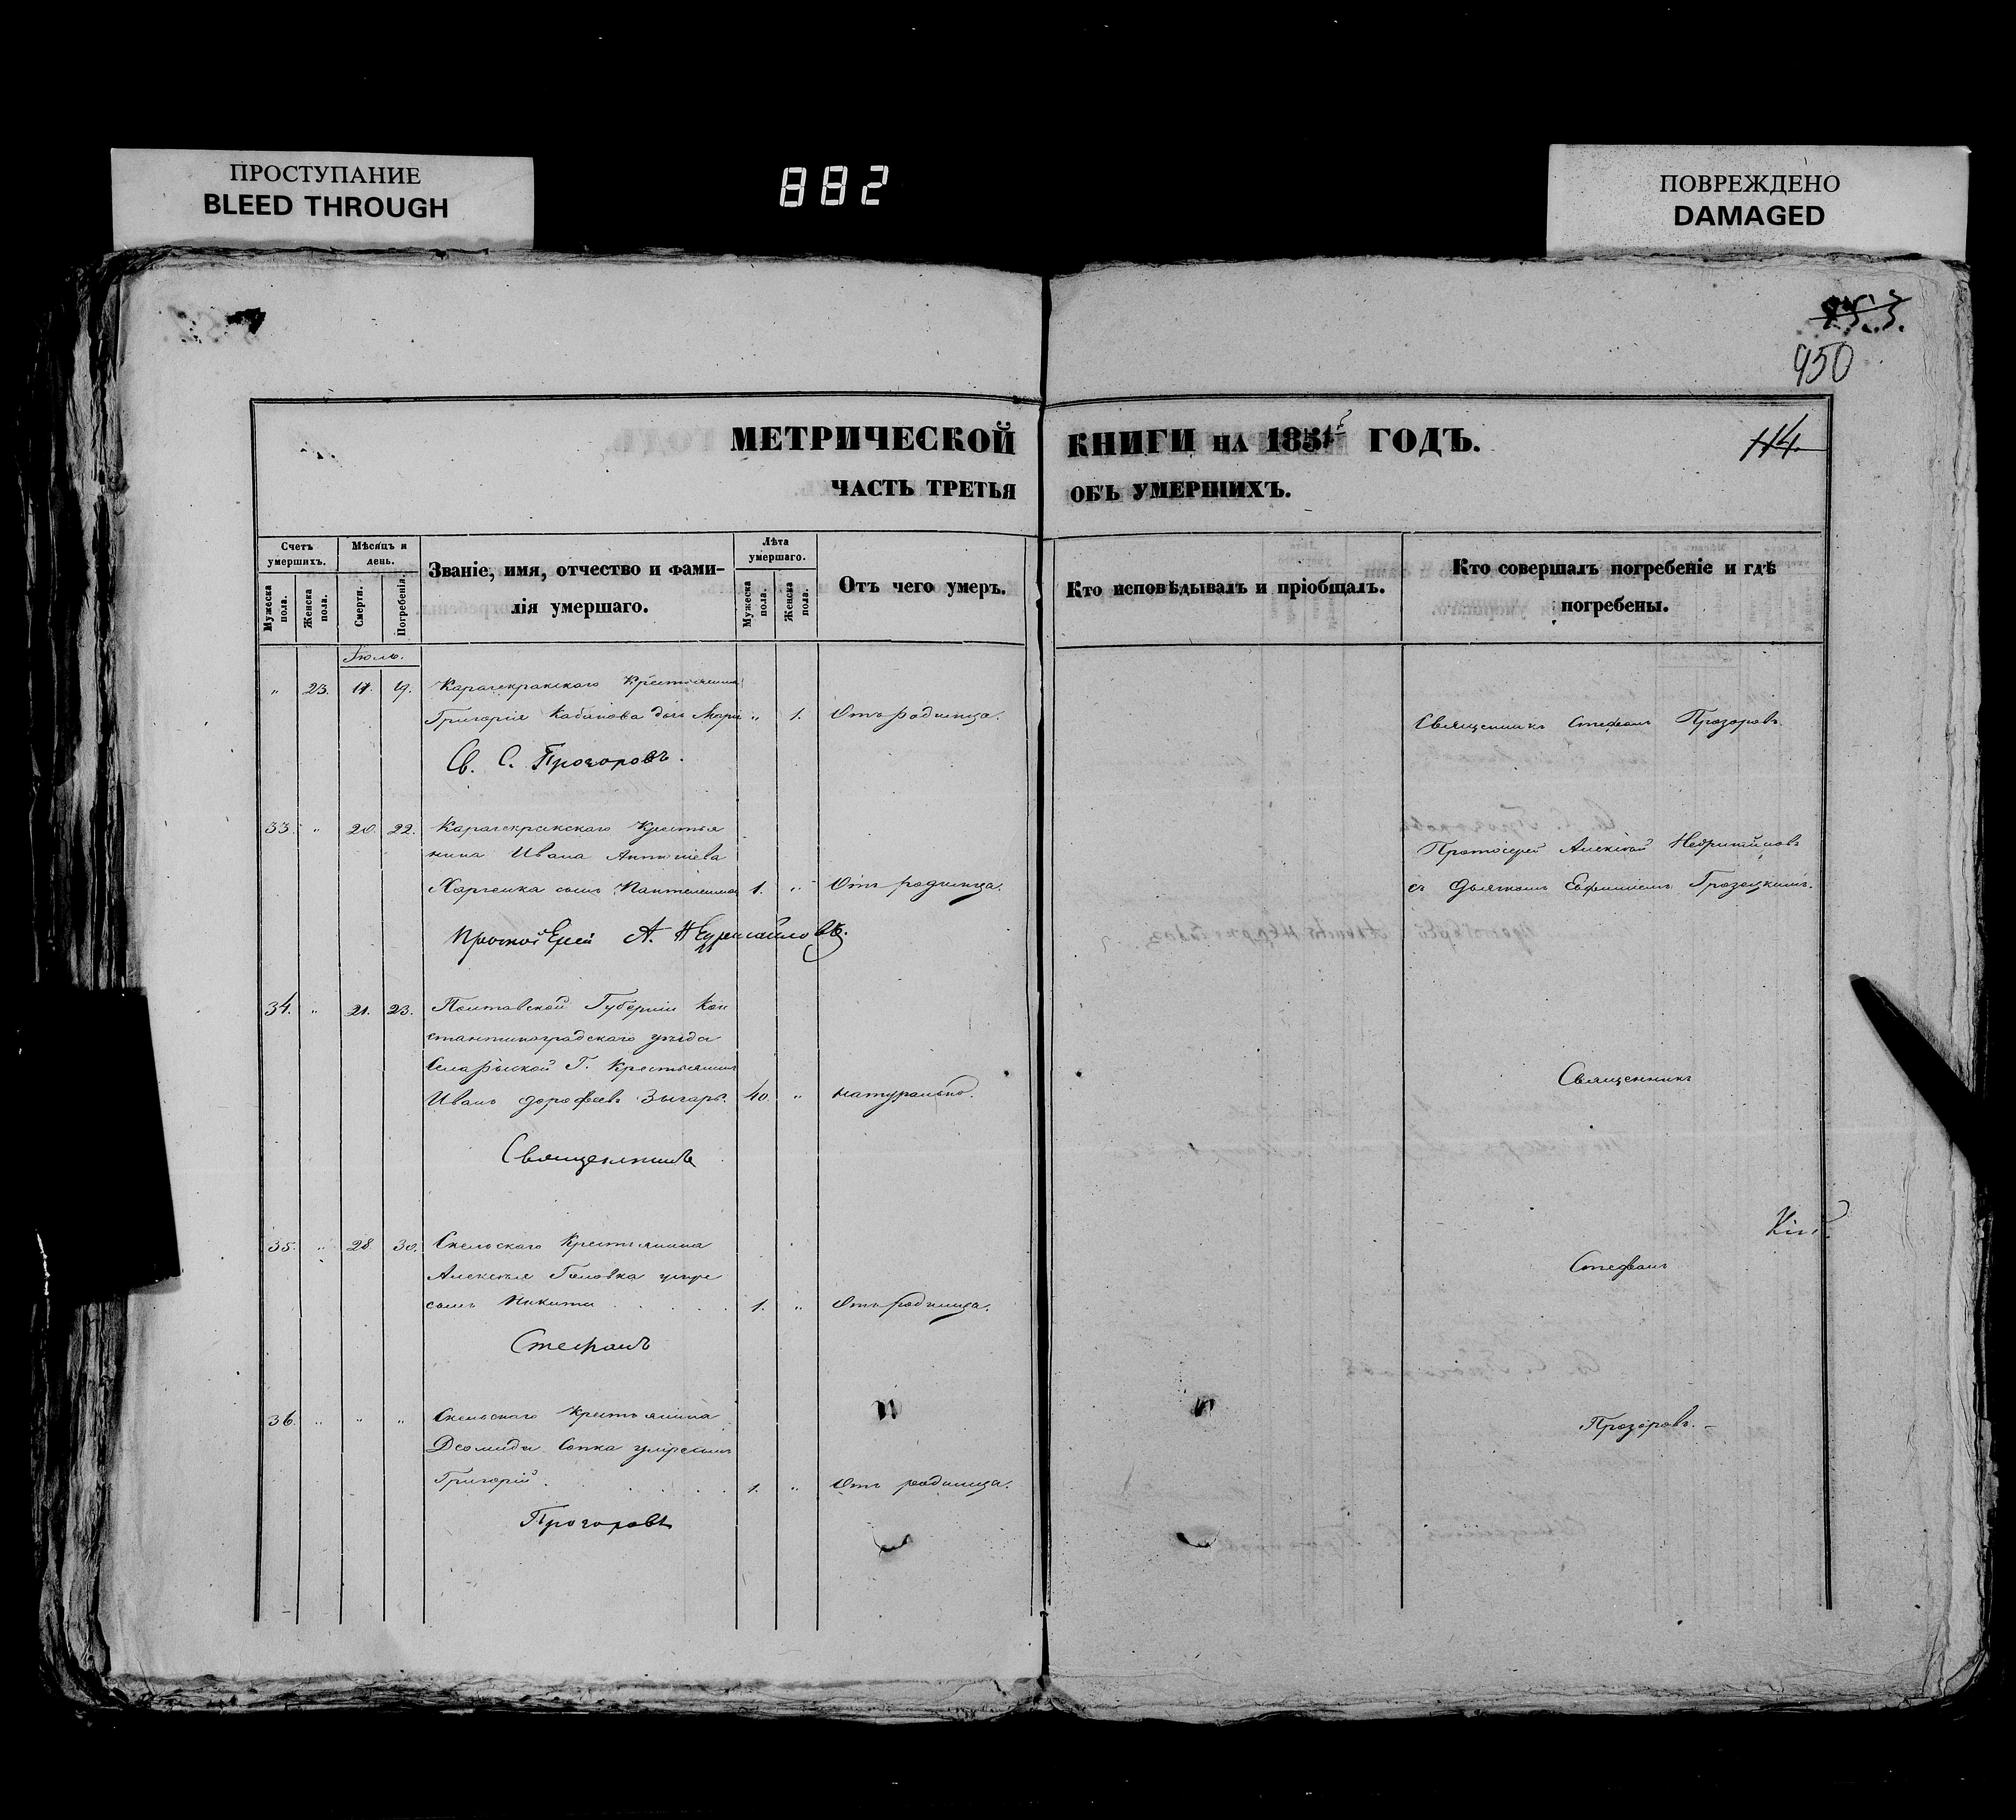 ПРОСТУПАНИЕ
BLEED THROUGH
882
ПОВРЕЖДЕНО
DAMAGED
950
МЕТРИЧЕСКОЙ КНИГИ на 185 ГОДЪ.
114
ЧАСТЬ ТРЕТЬЯ ОБЪ УМЕРШИХЪ.
Счетъ умершихъ.
Мужеска пола.
Женска пола.
Мѣсяцъ и день.
Смерти.
Погребенія.
Званіе, имя, отчество и фамилія умершаго.
Лѣта умершаго.
Мужеска пола.
Женска пола.
Отъ чего умеръ.
Кто исповѣдывалъ и пріобщалъ.
Кто совершалъ погребеніе и гдѣ погребены.
Іюль.
„ 23. 19. Карачекракского Крестьянина
Григорія дочь Марія „ 1. Отъ родимца. Священникъ Стефанъ Прозоровъ
Св. С. Прозоровъ.
33. „ 20. 22. Карачекракского Крестья
нина Ивана Антоніева Протоіерей Алексѣй
Харченка сынъ Пантелеимонъ 1. „ Отъ родимца. съ дьячкомъ Евфиміемъ
Протоіерей А.
34. „ 21. 23. Полтавской Губерніи Кон
стантиноградского уѣзда
Г. Крестьянинъ Священникъ
Иванъ Дорофеевъ 40. „ натурально.
Священникъ
35. „ 28. 30. Скельского Крестьянина
Алексѣя Головка умре Стефанъ
сынъ Никита 1. „ Отъ родимца.
Стефанъ
36. „ „ „ Скельского Крестьянина Прозоровъ.
Григорій 1. „ Отъ родимца.
Прозоровъ